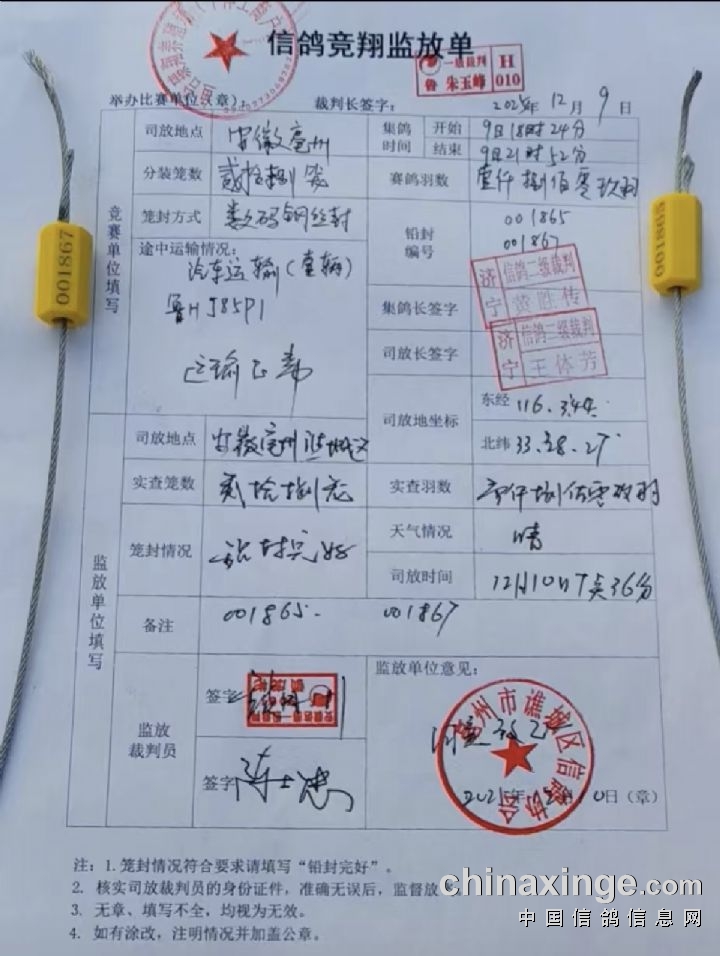 信鸽竞翔监放单
一级裁判 H
鲁 朱玉峰 010
举办比赛单位(章): 裁判长签字: 2025年12月9日
竞赛单位填写
司放地点 安徽亳州 集鸽时间 开始 9日18时24分
结束 9日21时52分
分装笼数 贰拾捌笼 赛鸽羽数 壹仟捌佰零玖羽
笼封方式 数码钢丝封 铅封编号 001865
001867
途中运输情况:
汽车运输(壹辆)
鲁HJ85P1
运输正常
集鸽长签字 济宁 信鸽二级裁判 黄胜传
司放长签字 济宁 信鸽二级裁判 王体芳
司放地坐标 东经 116.344
北纬 33.28.27
监放单位填写
司放地点 安徽亳州谯城区
实查笼数 贰拾捌笼 实查羽数 壹仟捌佰零玖羽
笼封情况 铅封完好 天气情况 晴
司放时间 12月10日7点36分
备注 001865. 001867
监放裁判员 签字
签字
监放单位意见:
同意放飞
亳州市谯城区信鸽协会
2025年12月10日(章)
注:1. 笼封情况符合要求请填写“铅封完好”。
2. 核实司放裁判员的身份证件,准确无误后,监督放
3. 无章、填写不全,均视为无效。
4. 如有涂改,注明情况并加盖公章。
001867
001865
chinaxinge.com
中国信鸽信息网